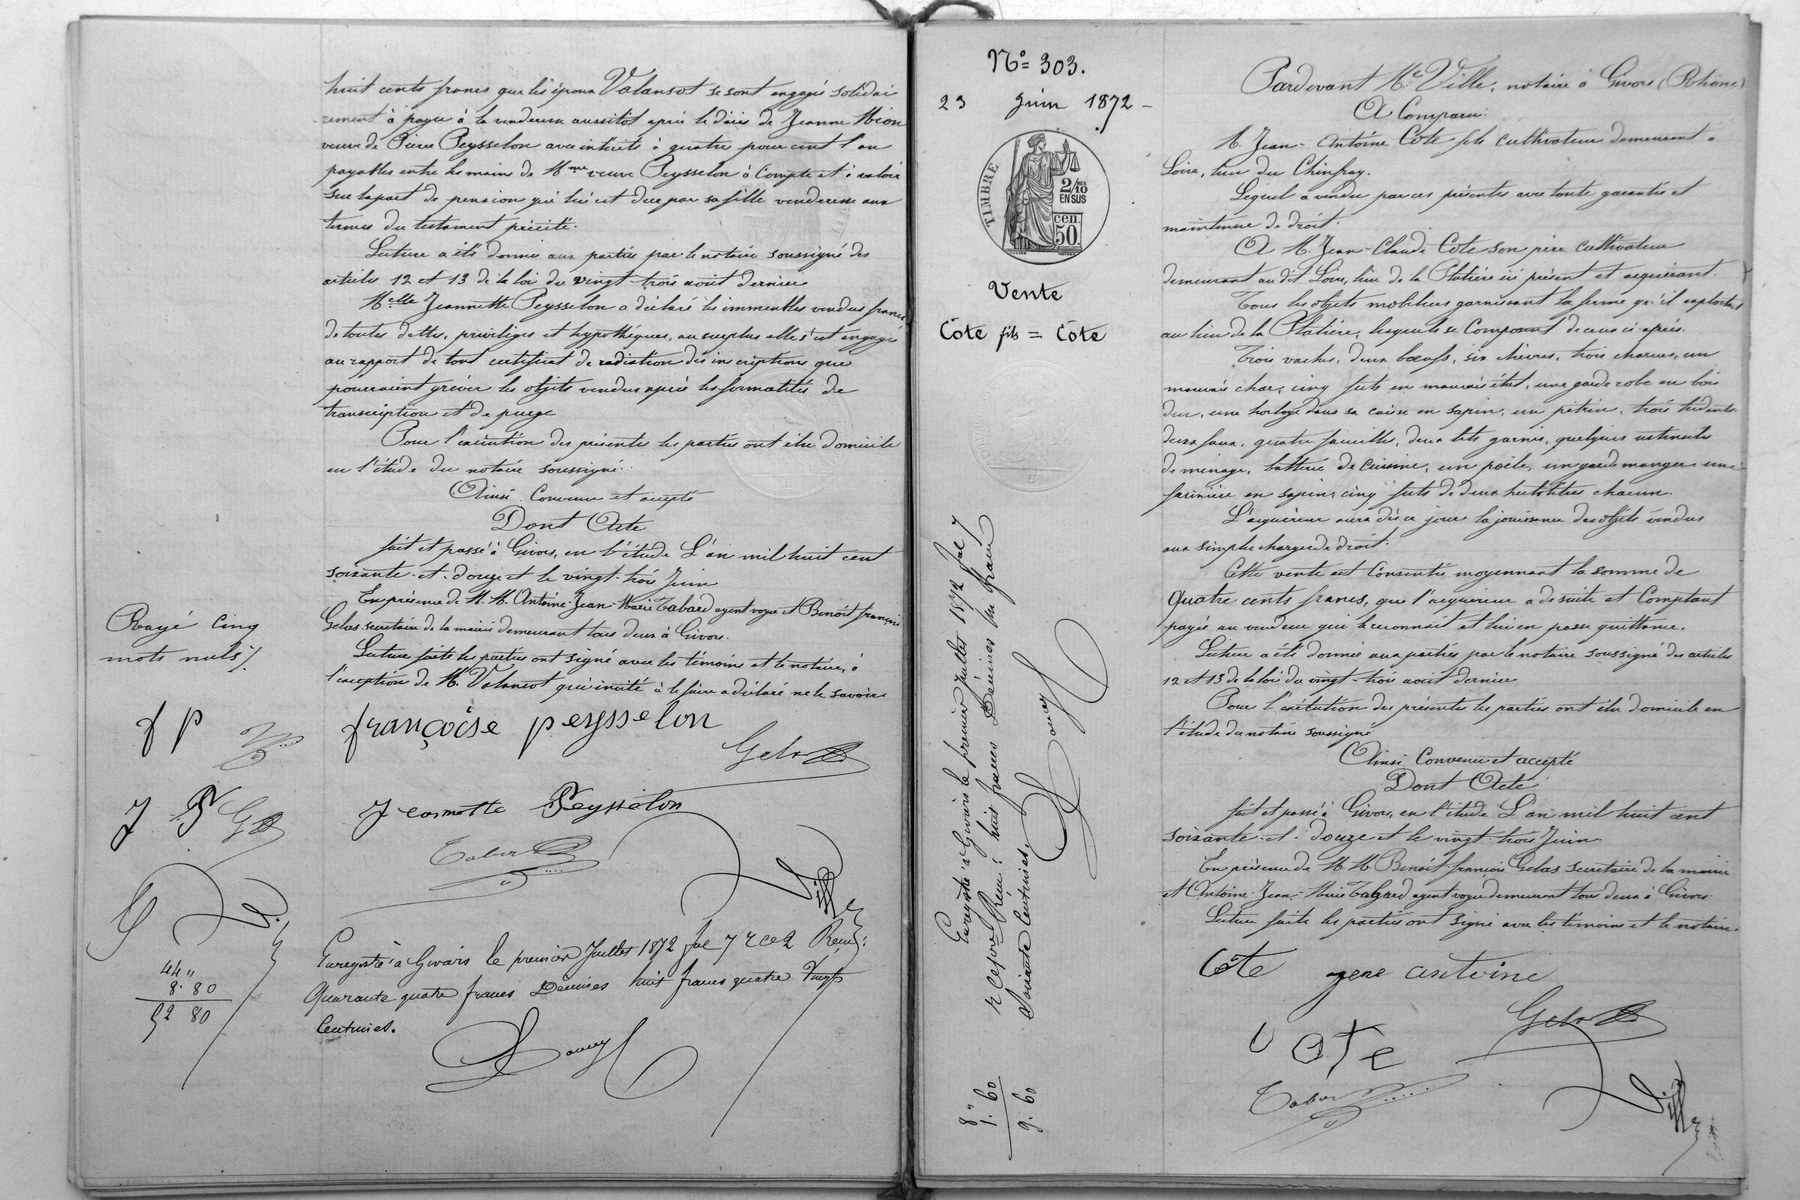 huit cents francs que les époux Valansot se sont engagés solidai
rement à payer à la venderesse aussitot après le décès de Jeanne Mion
veuve de Pierre Peysselon avec intérêts à quatre pour cent l'an
payables entre les mains de Mme veuve Peysselon à compte et à valoir
sur la part de pension qui lui est due par sa fille venderesse aux
termes du testament précité.
Lecture a été donnée aux parties par le notaire soussigné des
articles 12 et 13 de la loi du vingt-trois août dernier
Melle Jeannette Peysselon a déclaré les immeubles vendus francs
de toutes dettes, privilèges et hypothèques, au surplus elle s'est engagée
au rapport de tout certificat de radiation des inscriptions que
pourraient grever les objets vendus après les formalités de
transcription et de purge
Pour l'exécution des présentes les parties ont élu domicile
en l'étude du notaire soussigné.
Ainsi Convenu et accepté
Dont Acte
fait et passé à Givors, en l'étude L'an mil huit cent
soixante-et-douze et le vingt-trois Juin
En présence de M.M. Antoine-Jean-Marie Tabard agent voyer et Benoit françois
Gelas secretaire de la mairie demeurant tous deux à Givors.
Lecture faite les parties ont signé avec les témoins et le notaire, à
l'exception de M. Valansot qui invité à le faire a déclaré ne le savoir
Rayé Cinq
mots nuls
f P
françoise peysselon
Gelas
J P G
Jeannette Peysselon
Tabard
Ville
Enregistré à Givors le premier Juillet 1872 fol 7 r c 2 Reçu:
Quarante quatre francs Décimes huit francs quatre vingt
Centimes.
44 "
8. 80
52 80
No= 303.
23 Juin 1872 -
TIMBRE
2/10 EN SUS
50 cen.
Vente
Côte fils = Côte
Enregistré à Givors le premier Juillet 1872 fol 7
r c Reçu: huit francs Décimes un franc
Soixante Centimes.
8 "
1. 60
9. 60
Pardevant Me Ville, notaire à Givors (Rhône)
A Comparu:
M. Jean-Antoine Côte fils cultivateur demeurant à
Loire, lieu du Chinfray.
Lequel a vendu par ces présentes avec toute garantie et
maintenue de droit
A M. Jean-Claude Côte son père cultivateur
demeurant au dit Loire, lieu de la Platière ici présent et acquérant.
Tous les objets mobiliers garnissant la ferme qu'il exploite
au lieu de la Platière, lesquels se Composent de ceux ci-après.
Trois vaches, deux bœufs, six chèvres, trois charrues, un
mauvais char, cinq futs en mauvais état, une garde robe en bois
dur, une horloge dans sa caisse en sapin, un pétrin, trois tridents
deux faux, quatre faucilles, deux lits garnis, quelques ustensiles
de ménage, batterie de cuisine, un poêle, un garde manger une
farinière en sapin, cinq futs de deux hectolitres chacun.
L'acquéreur aura dès ce jour la jouissance des objets vendus
aux simples charges de droit.
Cette vente est Consentie moyennant la somme de
quatre cents francs, que l'acquéreur a de suite et Comptant
payée au vendeur qui le reconnait et lui en passe quittance.
Lecture a été donnée aux parties par le notaire soussigné des articles
12 et 13 de la loi du vingt-trois août dernier
Pour l'exécution des présentes les parties ont élu domicile en
l'étude du notaire soussigné
Ainsi Convenu et accepté
Dont Acte
fait et passé à Givors, en l'étude L'an mil huit cent
soixante-et-douze et le vingt-trois Juin
En présence de M.M. Benoit françois Gelas secretaire de la mairie
et Antoine-Jean-Marie Tabard agent voyer demeurant tous deux à Givors.
Lecture faite les parties ont signé avec les témoins et le notaire.
Côte jene antoine
Gelas
Cote
Tabard
Ville